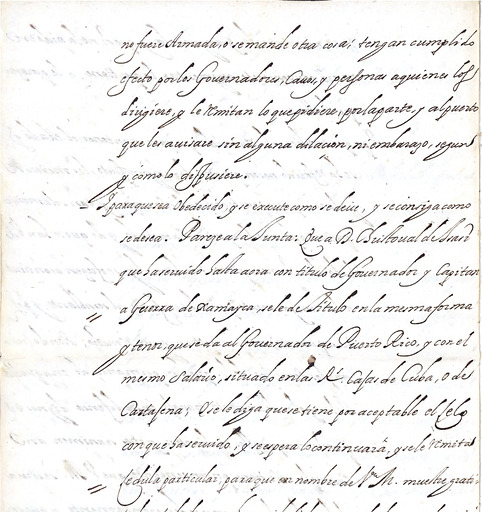 no fuere Armada, o se mande otra cosa; tengan cumplido
efecto por los Governadores, Cavos, y personas a quienes los
dirigiere, y le Remitan lo que pidiere, por la parte, y al puerto
que les avisare sin alguna dilacion, ni embarazo, segun
y como lo dispusiere.
Y para que sea Obedecido, y se execute como se deve, y se consiga como
se desea. Pareze a la Junta: Que a D. Christoval de Isasi
que ha servido hasta aora con titulo de Governador y Capitan
a Guerra de Xamayca, se le de Titulo en la misma forma
y tenor, que se da al Governador de Puerto Rico, y con el
mesmo Salario, situado en las Rs. Casas de Cuba, o de
Cartagena; Y se le diga que se tiene por aceptable el Celo
con que ha servido, y se espera lo continuará, y se le Remita
Cedula particular, para que en nombre de V. M. muestre grati